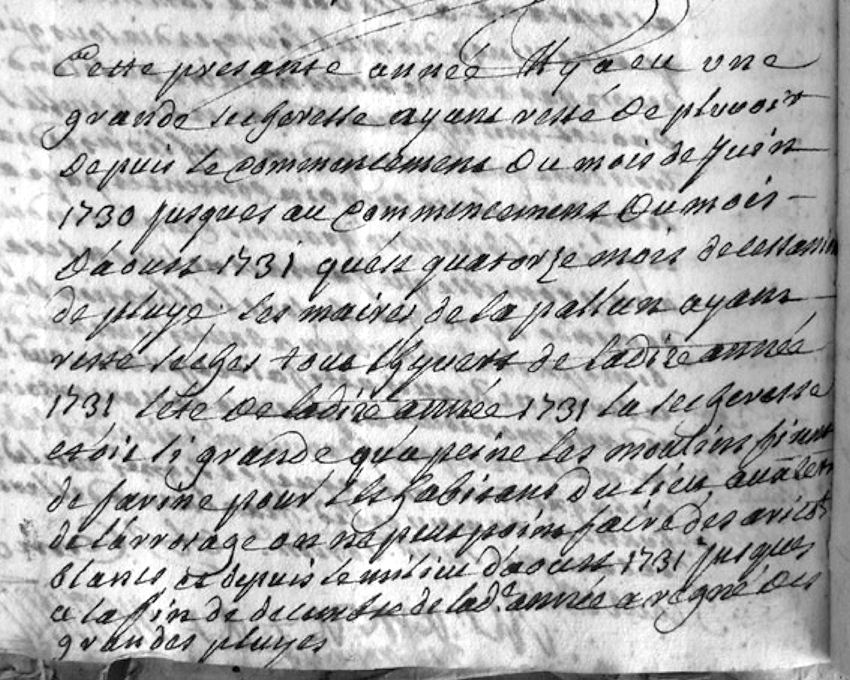 Cette presante année Il y a eu une
grande secheresse ayant resté de pluvoir
Depuis le commencement Du mois de Juin
1730 jusques au commencement Du mois
D'aoust 1731 qu'est quatorze mois de cessation
de pluye les maires de la pallun ayant
resté seches tout l'hyvert de ladite année
1731 l'été De ladite année 1731 la secheresse
etoit si grande qu'a peine les moulins firent
de farine pour les habitans Du lieu
de l'arrosage on ne peut point faire des aricots
blancs et depuis le milieu d'aoust 1731 jusques
a la fin de decembre de lad.e année a regné Des
grandes pluyes